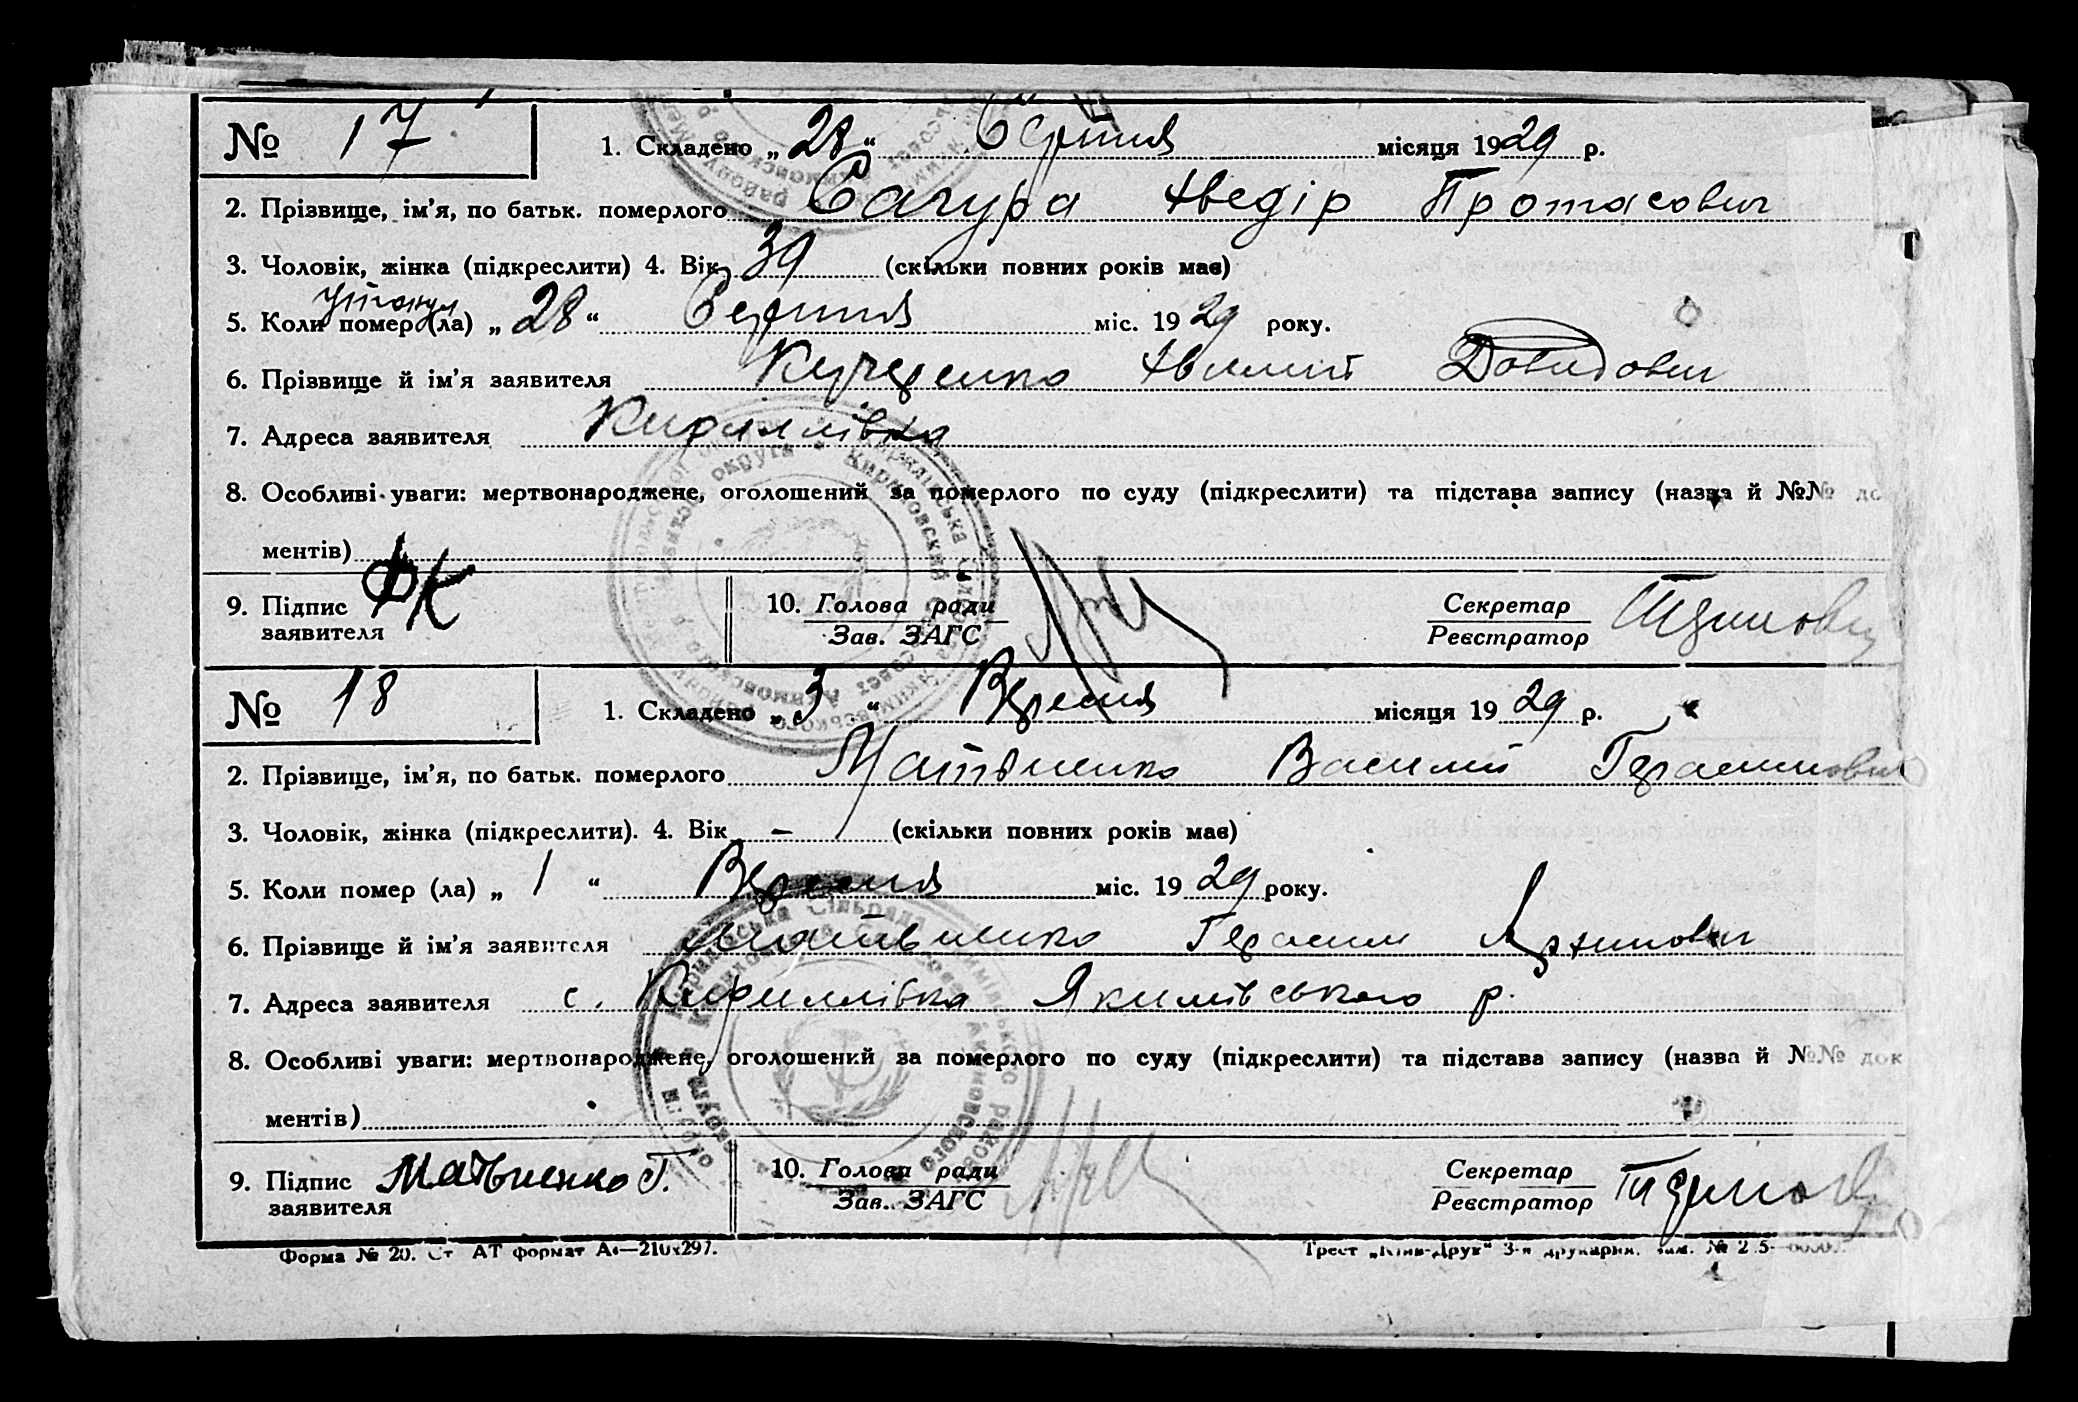 № 17 1. Складено „28“ Серпня місяця 1929 р.
2. Прізвище, ім'я, по батьк. померлого Сагура Хведір Протасович
3. Чоловік, жінка (підкреслити) 4. Вік 39 (скільки повних років має)
утонул
5. Коли помер (ла) „28“ Серпня міс. 1929 року.
6. Прізвище й ім'я заявителя Кучеренко Давидович
7. Адреса заявителя Кириллівка
8. Особливі уваги: мертвонароджене, оголошений за померлого по суду (підкреслити) та підстава запису (назва й №№ до
ментів)
9. Підпис заявителя ФК 10. Голова ради Зав. ЗАГС Секретар Реєстратор
№ 18 1. Складено „3“ Вересня місяця 1929 р.
2. Прізвище, ім'я, по батьк. померлого Матвиенко Василий Герасимович
3. Чоловік, жінка (підкреслити). 4. Вік – (скільки повних років має)
5. Коли помер (ла) „1“ Вересня міс. 1929 року.
6. Прізвище й ім'я заявителя Матвиенко Герасим
7. Адреса заявителя с. Кириллівка Якимівського р.
8. Особливі уваги: мертвонароджене, оголошений за померлого по суду (підкреслити) та підстава запису (назва й №№ док
ментів)
9. Підпис заявителя Матвиенко Г. 10. Голова ради Зав. ЗАГС Секретар Реєстратор
Форма № 20. Ст АТ формат А4—210х297. Трест „Київ-Друк“ 3-я друкарня.